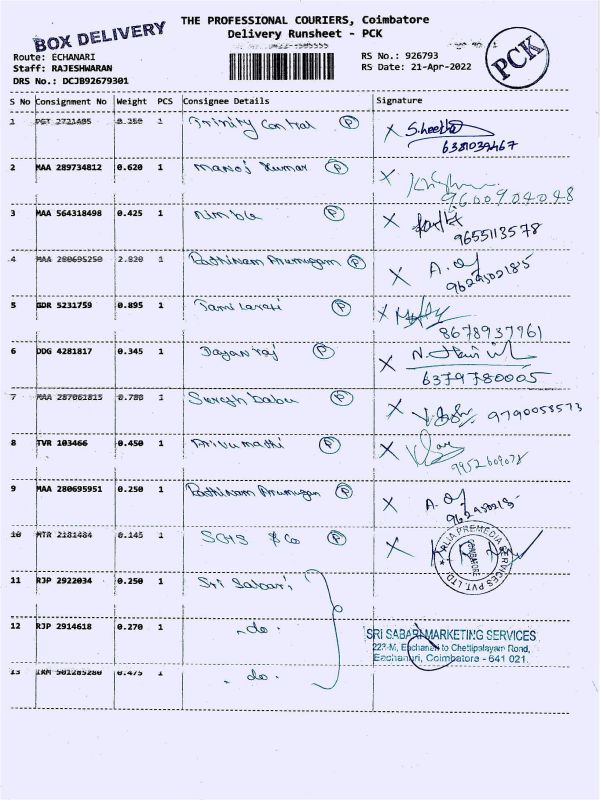 BOX DELIVERY
THE PROFESSIONAL COURIERS, Coimbatore
Delivery Runsheet - PCK
Route: ECHANARI
Staff: RAJESHWARAN
DRS No.: DCJB92679301
RS No.: 926793
RS Date: 21-Apr-2022
PCK
S No Consignment No Weight PCS Consignee Details Signature
1 PGT 2721485 0.250 1 Trinity Central P X
6381039467
2 MAA 289734812 0.620 1 Manoj Kumar P X
9600904048
3 MAA 564318498 0.425 1 Nimble P X
9655113578
4 MAA 280695250 2.820 1 Rathinam Arumugam P X
9629502185
5 GDR 5231759 0.895 1 P X
8678937961
6 DDG 4281817 0.345 1 Dayan raj P X
6379780005
7 MAA 287061815 0.780 1 Suresh babu P X 9790058573
8 TVR 103466 0.450 1 Arivumathi P X
9952609078
9 MAA 280695951 0.250 1 Rathinam Arumugam P X
10 MTR 2181484 0.145 1 & Co P X
ALIA PREMEDIA SERVICES PVT. LTD.
COIMBATORE
11 RJP 2922034 0.250 1 Sri Sabari
12 RJP 2914618 0.270 1 - do -
SRI SABARI MARKETING SERVICES
223-M, Eachanari to Chettipalayam Road,
Eachanari, Coimbatore - 641 021.
13 501285280 0.475 1 - do -